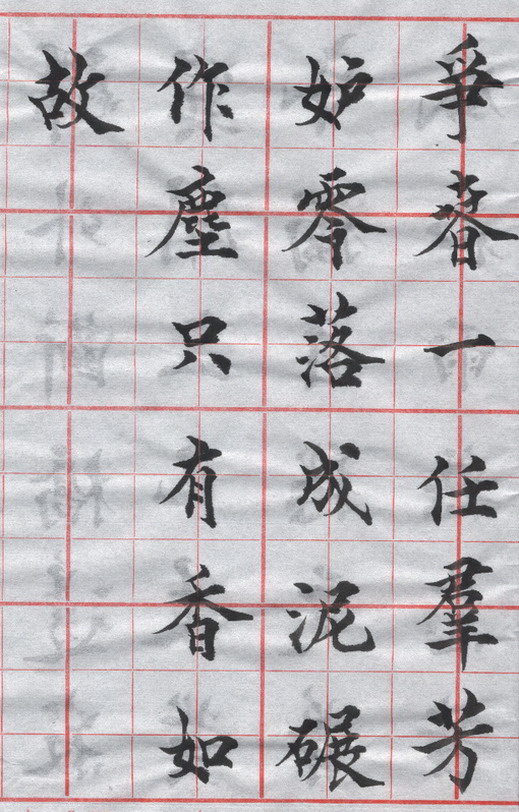 爭春一任羣芳
妒零落成泥碾
作塵只有香如
故